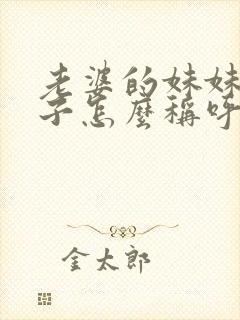 老婆的妹妹
子怎麼稱呼
金太郎